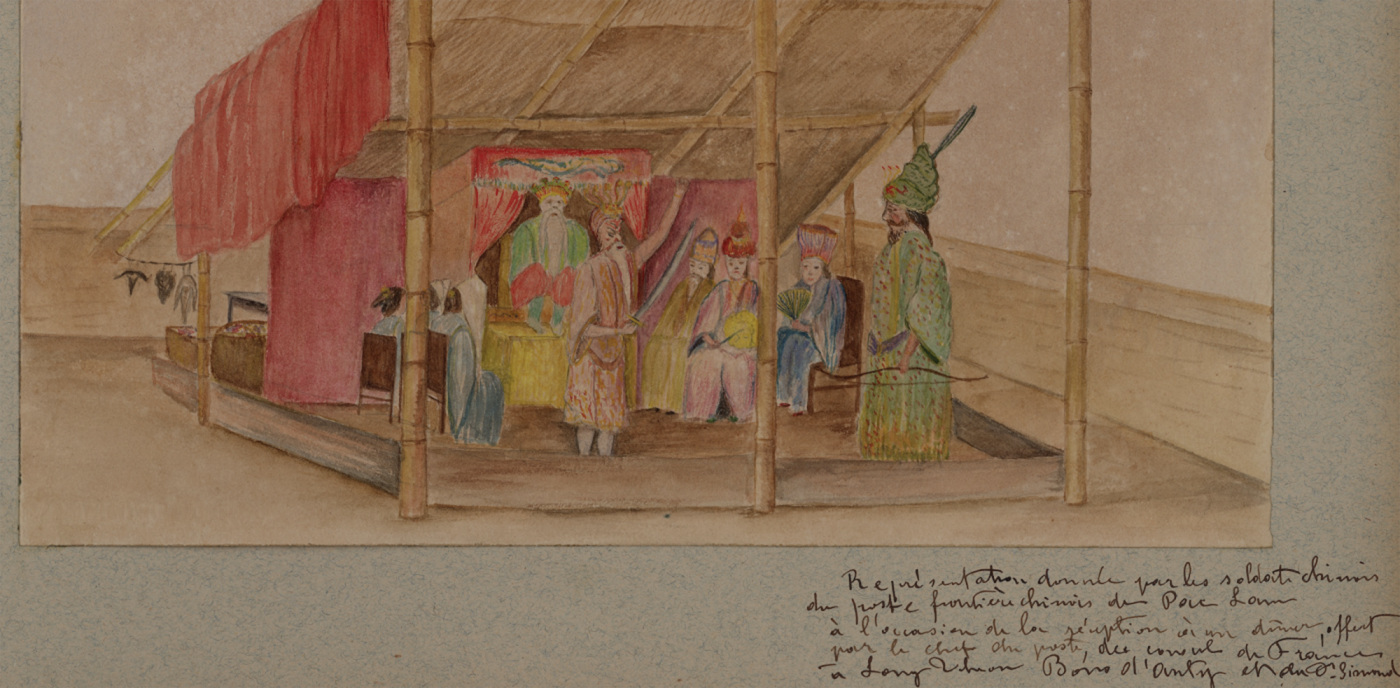 Représentation donnée par les soldats chinois
du poste frontière chinois de Pac Lam
à l'occasion de la réception à un dîner, offert
par le chef du poste, du consul de France
à Long Bons d'Anty et du Dr. Simond